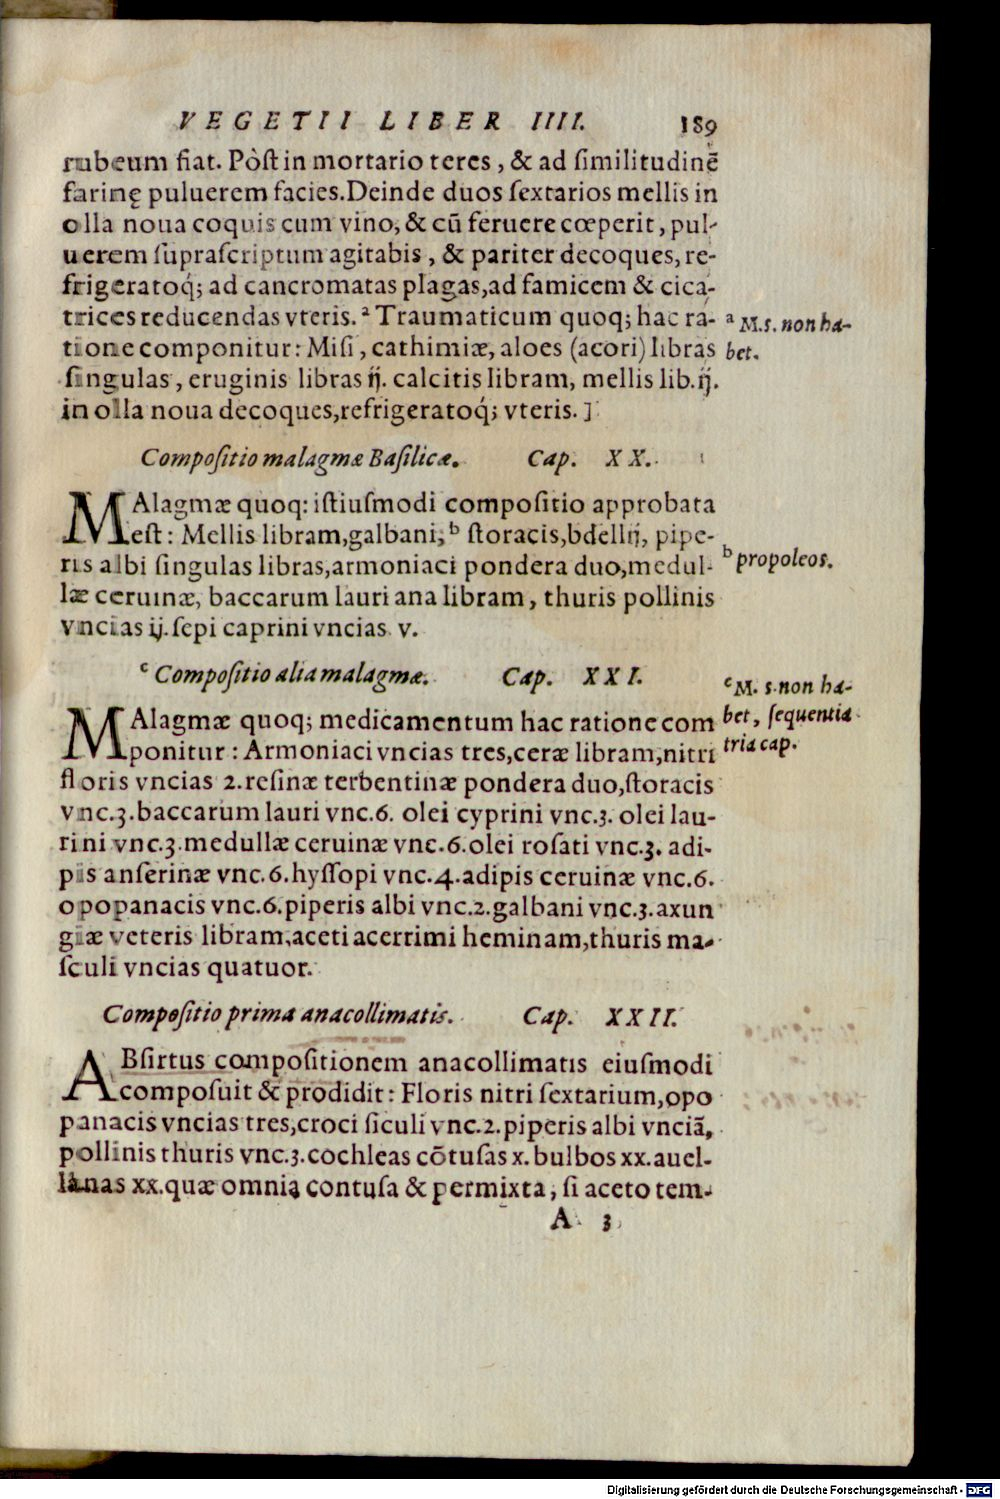 VEGETII LIBER IIII. 189
rubeum fiat. Pòst in mortario teres, & ad similitudinẽ
farinę puluerem facies. Deinde duos sextarios mellis in
olla noua coquis cum vino, & cũ feruere cœperit, pul-
uerem suprascriptum agitabis, & pariter decoques, re-
frigeratoq́; ad cancromatas plagas, ad famicem & cica-
trices reducendas vteris. ᵃ Traumaticum quoq; hac ra-
ᵃ M.s. non ha-
tione componitur: Misi, cathimiæ, aloes (acori) libras
bet.
singulas, eruginis libras ij. calcitis libram, mellis lib. ij.
in olla noua decoques, refrigeratoq́; vteris. ]
Compositio malagmæ Basilicæ. Cap. XX.
MAlagmæ quoq: istiusmodi compositio approbata
est: Mellis libram, galbani, ᵇ storacis, bdellij, pipe-
ᵇ propoleos.
ris albi singulas libras, armoniaci pondera duo, medul-
læ ceruinæ, baccarum lauri ana libram, thuris pollinis
vncias ij. sepi caprini vncias v.
ᶜ Compositio alia malagmæ. Cap. XXI.
ᶜ M. s. non ha-
bet, sequentia
tria cap.
MAlagmæ quoq; medicamentum hac ratione com
ponitur: Armoniaci vncias tres, ceræ libram, nitri
floris vncias 2. resinæ terbentinæ pondera duo, storacis
vnc.3. baccarum lauri vnc.6. olei cyprini vnc.3. olei lau-
rini vnc.3. medullæ ceruinæ vnc.6. olei rosati vnc.3. adi-
pis anserinæ vnc.6. hyssopi vnc.4. adipis ceruinæ vnc.6.
opopanacis vnc.6. piperis albi vnc.2. galbani vnc.3. axun
giæ veteris libram, aceti acerrimi heminam, thuris ma-
sculi vncias quatuor.
Compositio prima anacollimatis. Cap. XXII.
ABsirtus compositionem anacollimatis eiusmodi
composuit & prodidit: Floris nitri sextarium, opo
panacis vncias tres, croci siculi vnc.2. piperis albi vnciã,
pollinis thuris vnc.3. cochleas cõtusas x. bulbos xx. auel-
lanas xx. quæ omnia contusa & permixta, si aceto tem-
A 3
Digitalisierung gefördert durch die Deutsche Forschungsgemeinschaft - DFG